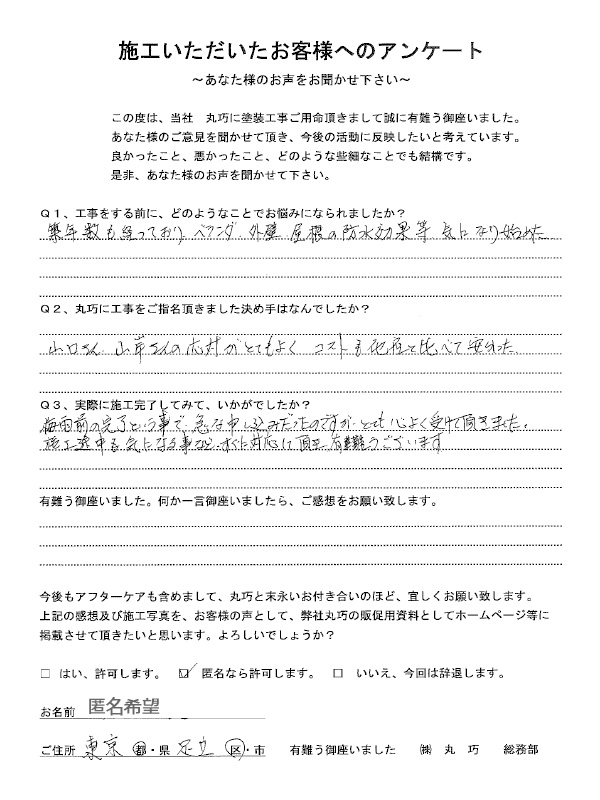 施工いただいたお客様へのアンケート
～あなた様のお声をお聞かせ下さい～
この度は、当社　丸巧に塗装工事ご用命頂きまして誠に有難う御座いました。
あなた様のご意見を聞かせて頂き、今後の活動に反映したいと考えています。
良かったこと、悪かったこと、どのような些細なことでも結構です。
是非、あなた様のお声を聞かせて下さい。
Ｑ１、工事をする前に、どのようなことでお悩みになられましたか？
築年数も経っており ベランダ 外壁 屋根の防水効果等 気になり始めた
Ｑ２、丸巧に工事をご指名頂きました決め手はなんでしたか？
山口さん 山岸さんの応対がとてもよく コストも他社と比べて安かった
Ｑ３、実際に施工完了してみて、いかがでしたか？
梅雨前の完了という事で、急な申し込みだったのですが、とても心よく受けて頂きました。
施工途中も気になる事など、すぐに対応して頂き 有難うございます
有難う御座いました。何か一言御座いましたら、ご感想をお願い致します。
今後もアフターケアも含めまして、丸巧と末永いお付き合いのほど、宜しくお願い致します。
上記の感想及び施工写真を、お客様の声として、弊社丸巧の販促用資料としてホームページ等に
掲載させて頂きたいと思います。よろしいでしょうか？
□ はい、許可します。 ☑ 匿名なら許可します。 □ いいえ、今回は辞退します。
お名前 匿名希望
ご住所 東京 都・県 足立 区・市 有難う御座いました ㈱ 丸 巧 総務部